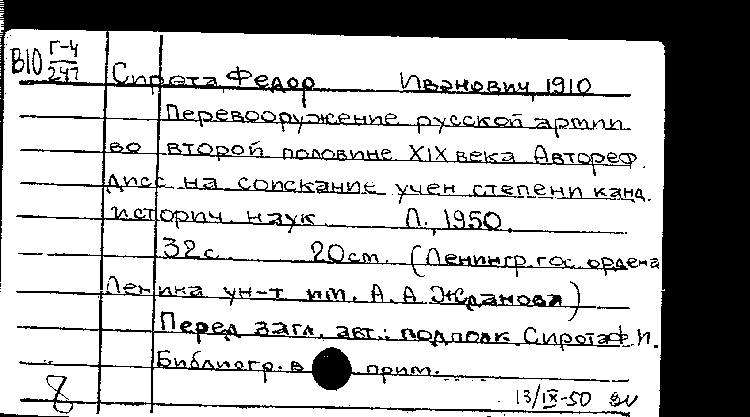 В10 Г-4/247
Сирота, Федор Иванович, 1910
Перевооружение русской армии
во второй половине XIX века. Автореф.
дисс. на соискание учен. степени канд.
историч. наук. Л., 1950.
32 с. 20 cm. (Ленингр. гос. ордена
Ленина ун-т им. А. А. Жданова)
Перед загл. авт.: подполк. Сирота Ф. И.
Библиогр. в прим.
8 13/IX-50